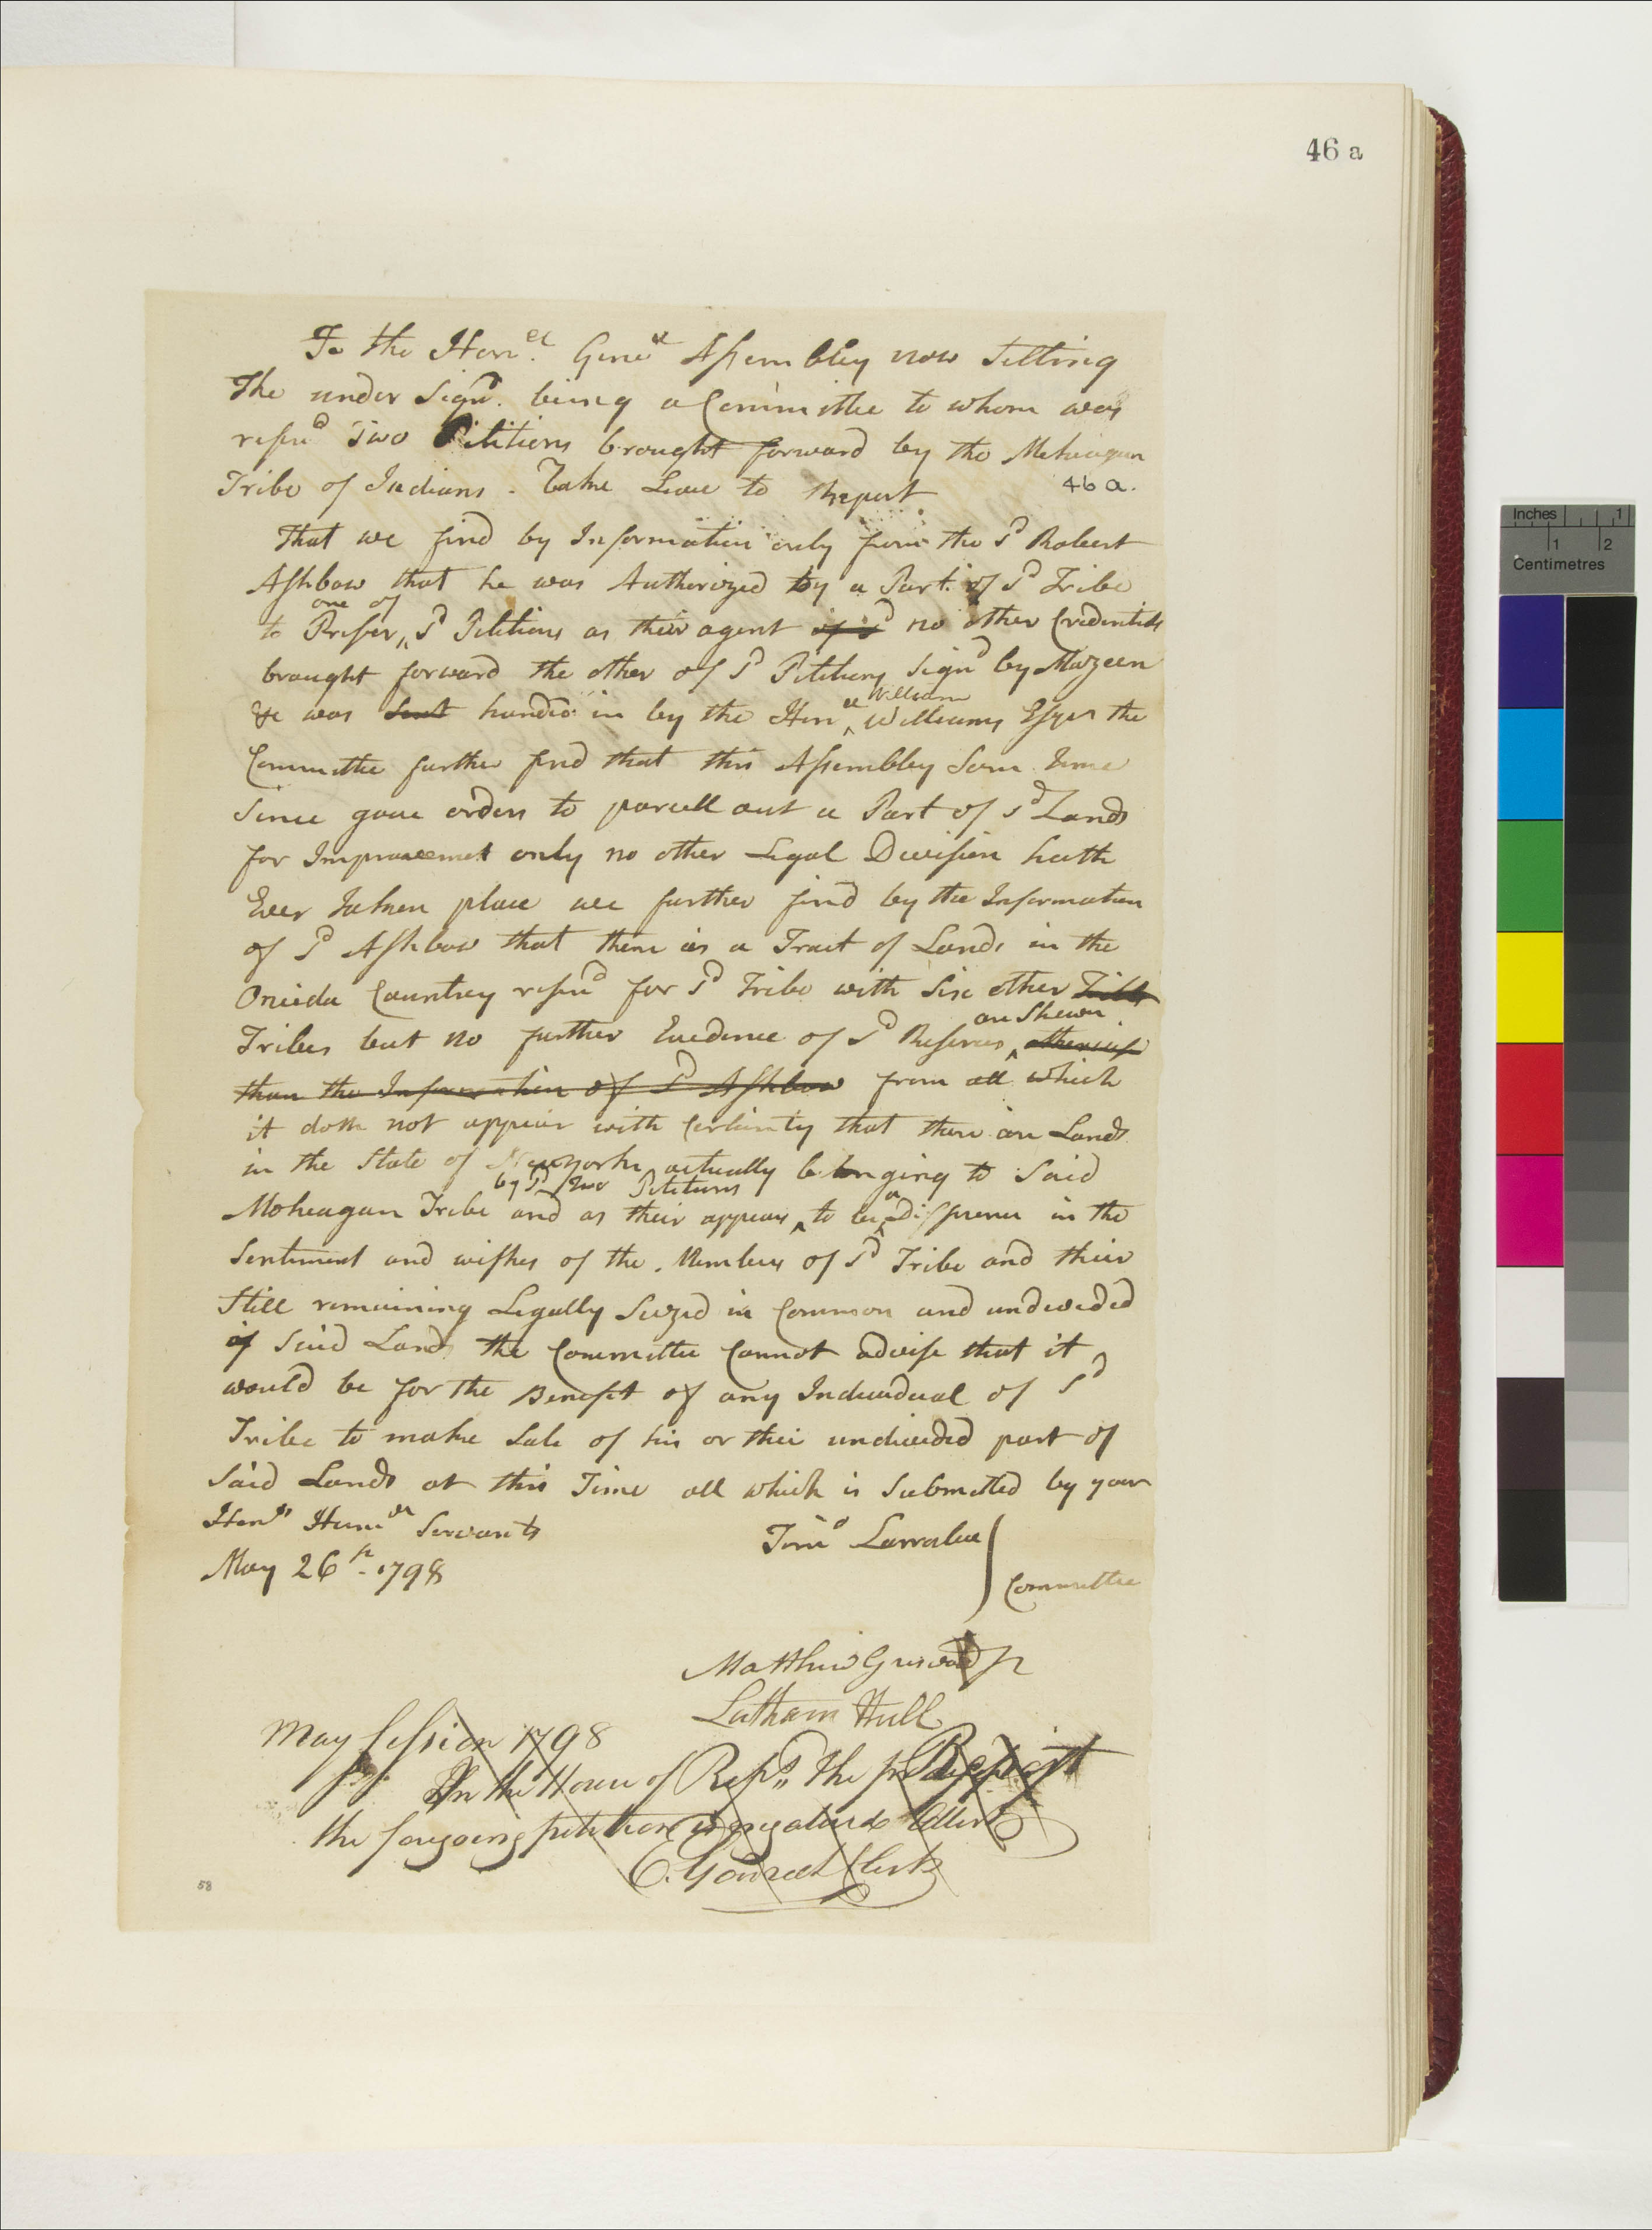 46 a
To the Honel Genel Assembley now Setting
The under Signd being a Committee to whom was
refrrd Two Petitions brought forward by the Moheagan
Tribe of Indians. Take Leave to Report
46 a.
That we find by Information only from the Sd Robert
Ashbow that he was Authorized by a Part of Sd Tribe
one of
to Prefer ^ Sd Petitions as their agent of Sd no other Credentials
brought forward the other of Sd Petitions Signd by Mazeen
William
&c was Sent handed in by the Honel ^ Williams Esqr the
Committee further find that this Assembley Som time
Since gave orders to parcell out a Part of Sd Lands
for Improvement only no other Legal Devision hath
Ever Taken place we further find by the Information
of Sd Ashbow that there is a Tract of Lands in the
Oneida Countrey resrvd for Sd Tribe with Six other Tribes
are Shewn
Tribes but no further Evedence of Sd Reserves ^ otherwise
than the Information of Sd Ashbow from all which
it doth not appear with Certainty that there are Lands
in the State of Newyork actually belonging to Said
by Sd Two Petitions
a
Moheagan Tribe and as their appears ^ to be ^ Difference in the
Sentiment and wishes of the Members of Sd Tribe and their
Still remaining Legally Seized in Common and undevided
of Said Lands the Committee Cannot advise that it
would be for the Benefit of any Indevidual of Sd
Tribe to make Sale of his or their undivided part of
Said Lands at this Time all which is Submitted by your
Honrs Humbl Servants
May 26th 1798
Timo Larrabee
Committee
Matthew Griswold Jr
Latham Hull
May Session 1798
In the House of Reps. The Report
the foregoing petition is negatived Attest
Clerk
58